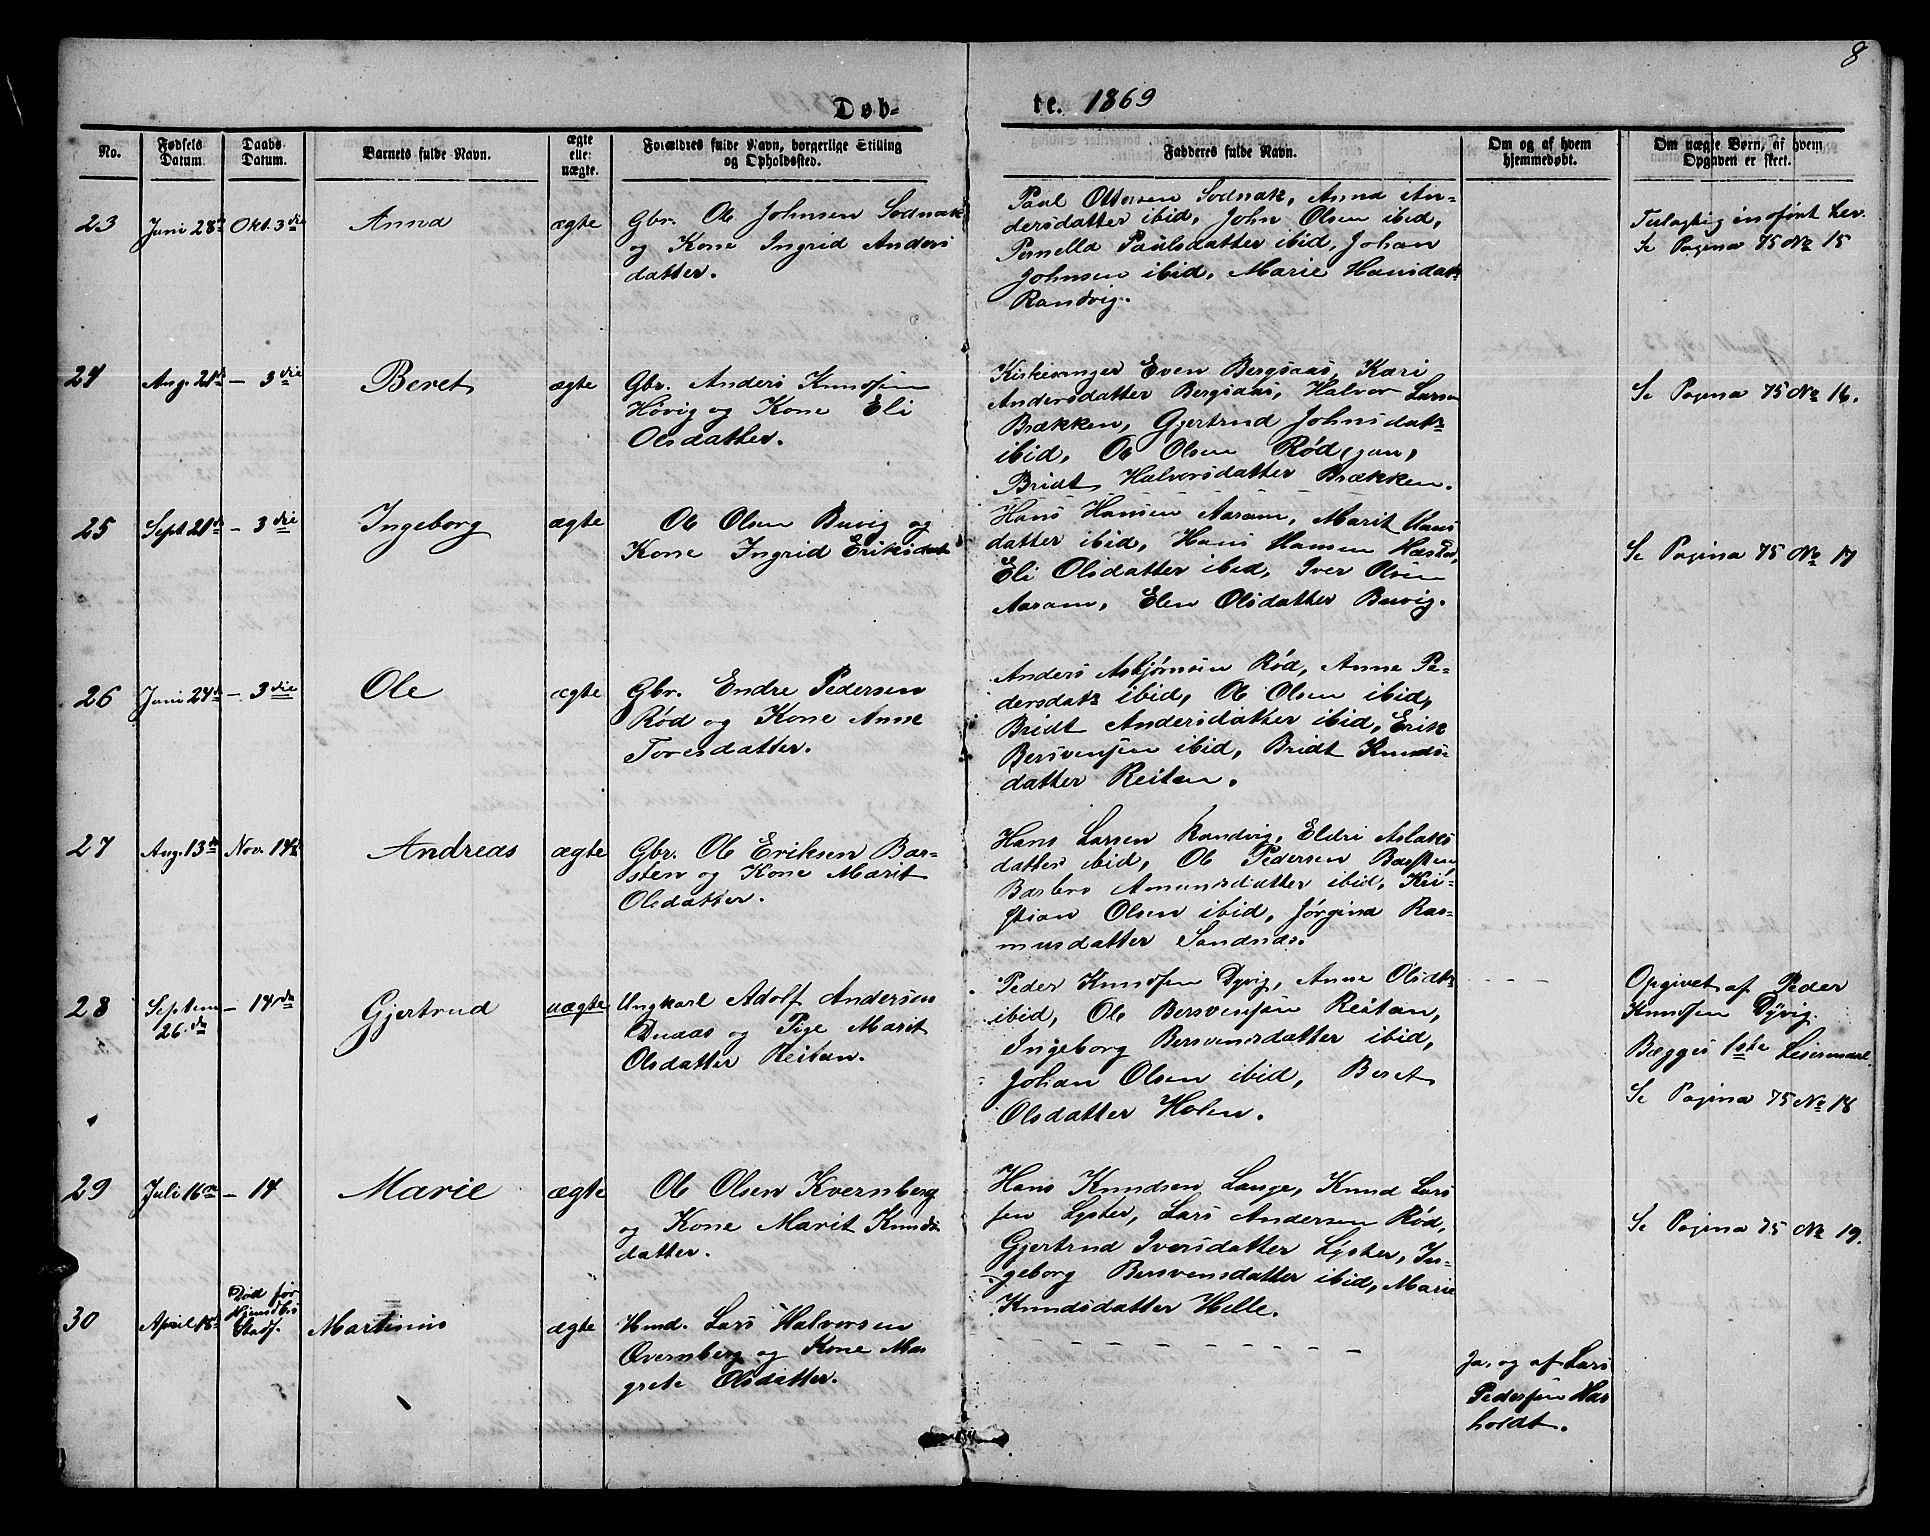 8
Døb-
te. 1869
No.
Fødsels Datum.
Daabs Datum.
Barnets fulde Navn.
ægte elle: uægte.
Forældres fulde Navn, borgerlige Stilling og Opholdssted.
Fadderes fulde Navn.
Om og af hvem hjemmedøbt.
Om uægte Børn, af hvem Opgaven er skeet.
23
Juni 28de
Okt. 3die
Anna
ægte
Gbr. Ole Johnsen Sodnak
og Kone Ingrid Anders
datter.
Paul Ottersen Sodnak, Anna An-
dersdatter ibid, John Olsen ibid,
Pernella Paulsdatter ibid, Johan
Johnsen ibid, Marie Hansdatr
Randvig.
inoført her.
Se Pagina 75 No 15
24
Aug. 21de
— 3die
Beret
ægte
Gbr. Anders Knudsen
Hövig og Kone Eli
Olsdatter.
Kirkesanger Even Bergsaas, Kari
Andersdatter Bergsaas, Halvor Larsen
Brækken, Gjertrud Johnsdatr
ibid, Ole Olsen Rød,
Bridt Halvorsdatter Brækken.
Se Pagina 75 No 16.
25
Sept. 21de
— 3die
Ingeborg
ægte
Ole Olsen Buvig og
Kone Ingrid Eriksdat
Hans Hansen Aaram, Marit Hans
datter ibid, Hans Hansen
Eli Olsdatter ibid, Iver Olsen
Aaram, Elen Olsdatter Buvig.
Se Pagina 75 No 17
26
Juni 24de
— 3die
Ole
ægte
Gbr. Endre Pedersen
Rød og Kone Anne
Toresdatter.
Anders Asbjørnsen Rød, Anne Pe-
dersdatr ibid, Ole Olsen ibid,
Bridt Andersdatter ibid, Erik
Bersvensen ibid, Bridt Knuds-
datter Reitan.
27
Aug. 13de
Nov. 14de
Andreas
ægte
Gbr. Ole Eriksen Bar-
sten og Kone Marit
Olsdatter.
Hans Larsen Randvig, Eldri Aslaks
datter ibid, Ole Pedersen Barsten,
Barbro Amunsdatter ibid, Kri-
stian Olsen ibid, Jørgina Ras-
musdatter Sandnæs.
28
Septem
26.de
— 14de
Gjertrud
uægte
Ungkarl Adolf Andersen
Duaas og Pige Marit
Olsdatter Reitan.
Peder Knudsen Dyvig, Anne Olsdtr
ibid, Ole Bersvensen Reitan,
Ingeborg Bersvensdatter ibid,
Johan Olsen ibid, Beret
Olsdatter Holen.
- - -
Opgivet af Peder
Knudsen Dyvig.
Bægges 1ste Leiermaal
Se Pagina 75 No 18
29
Juli 16de
— 14
Marie
ægte
Ole Olsen Kvernberg
og Kone Marit Knuds
datter.
Hans Knudsen Lange, Knud Lars
sen Lyster, Lars Andersen Rød,
Gjertrud Iversdatter Lyster, In-
geborg Bersvensdatter ibid, Marie
Knudsdatter Helle.
Se Pagina 75 No 19.
30
April 18de
Død før
Hjemdbs
Stadf.
Martinus
ægte
Hmd. Lars Halvorsen
Qvernberg og Kone Mar
grete Olsdatter.
- - - - - - - - -
Ja, og af Lars
Pedersen Har
holdt.